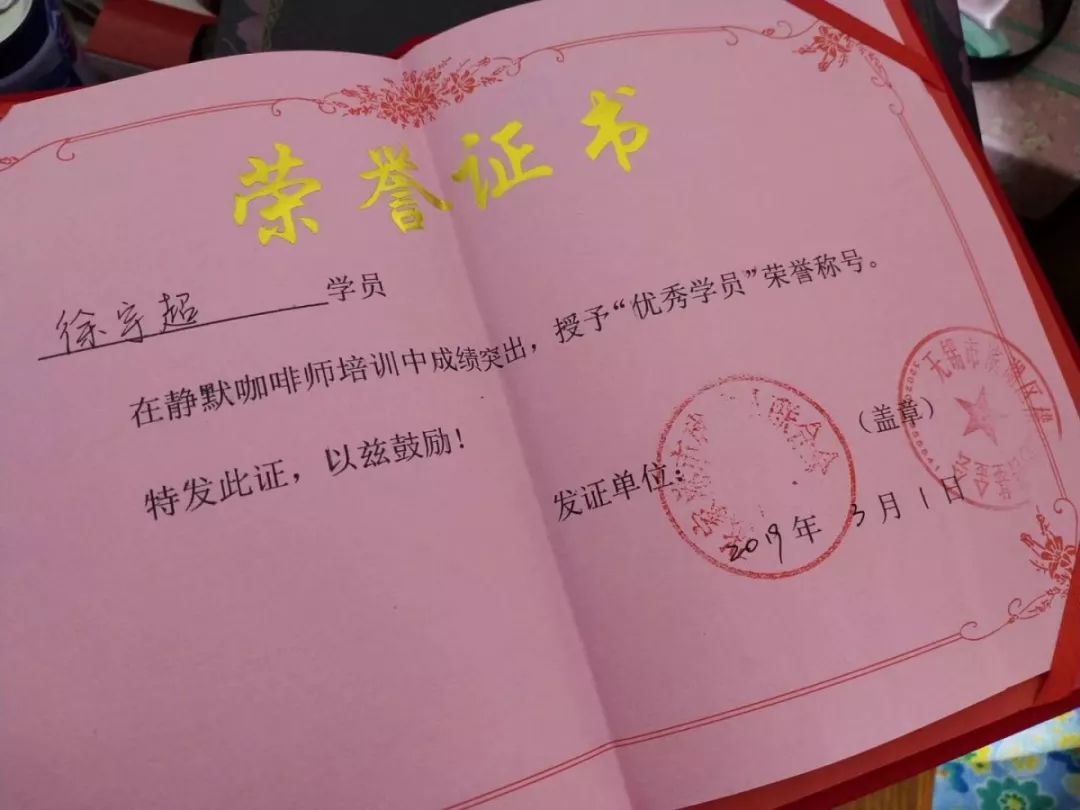 荣誉证书
徐宇超 学员
在静默咖啡师培训中成绩突出，授予“优秀学员”荣誉称号。
特发此证，以兹鼓励！
（盖章）
发证单位：
2019年3月1日
无锡市